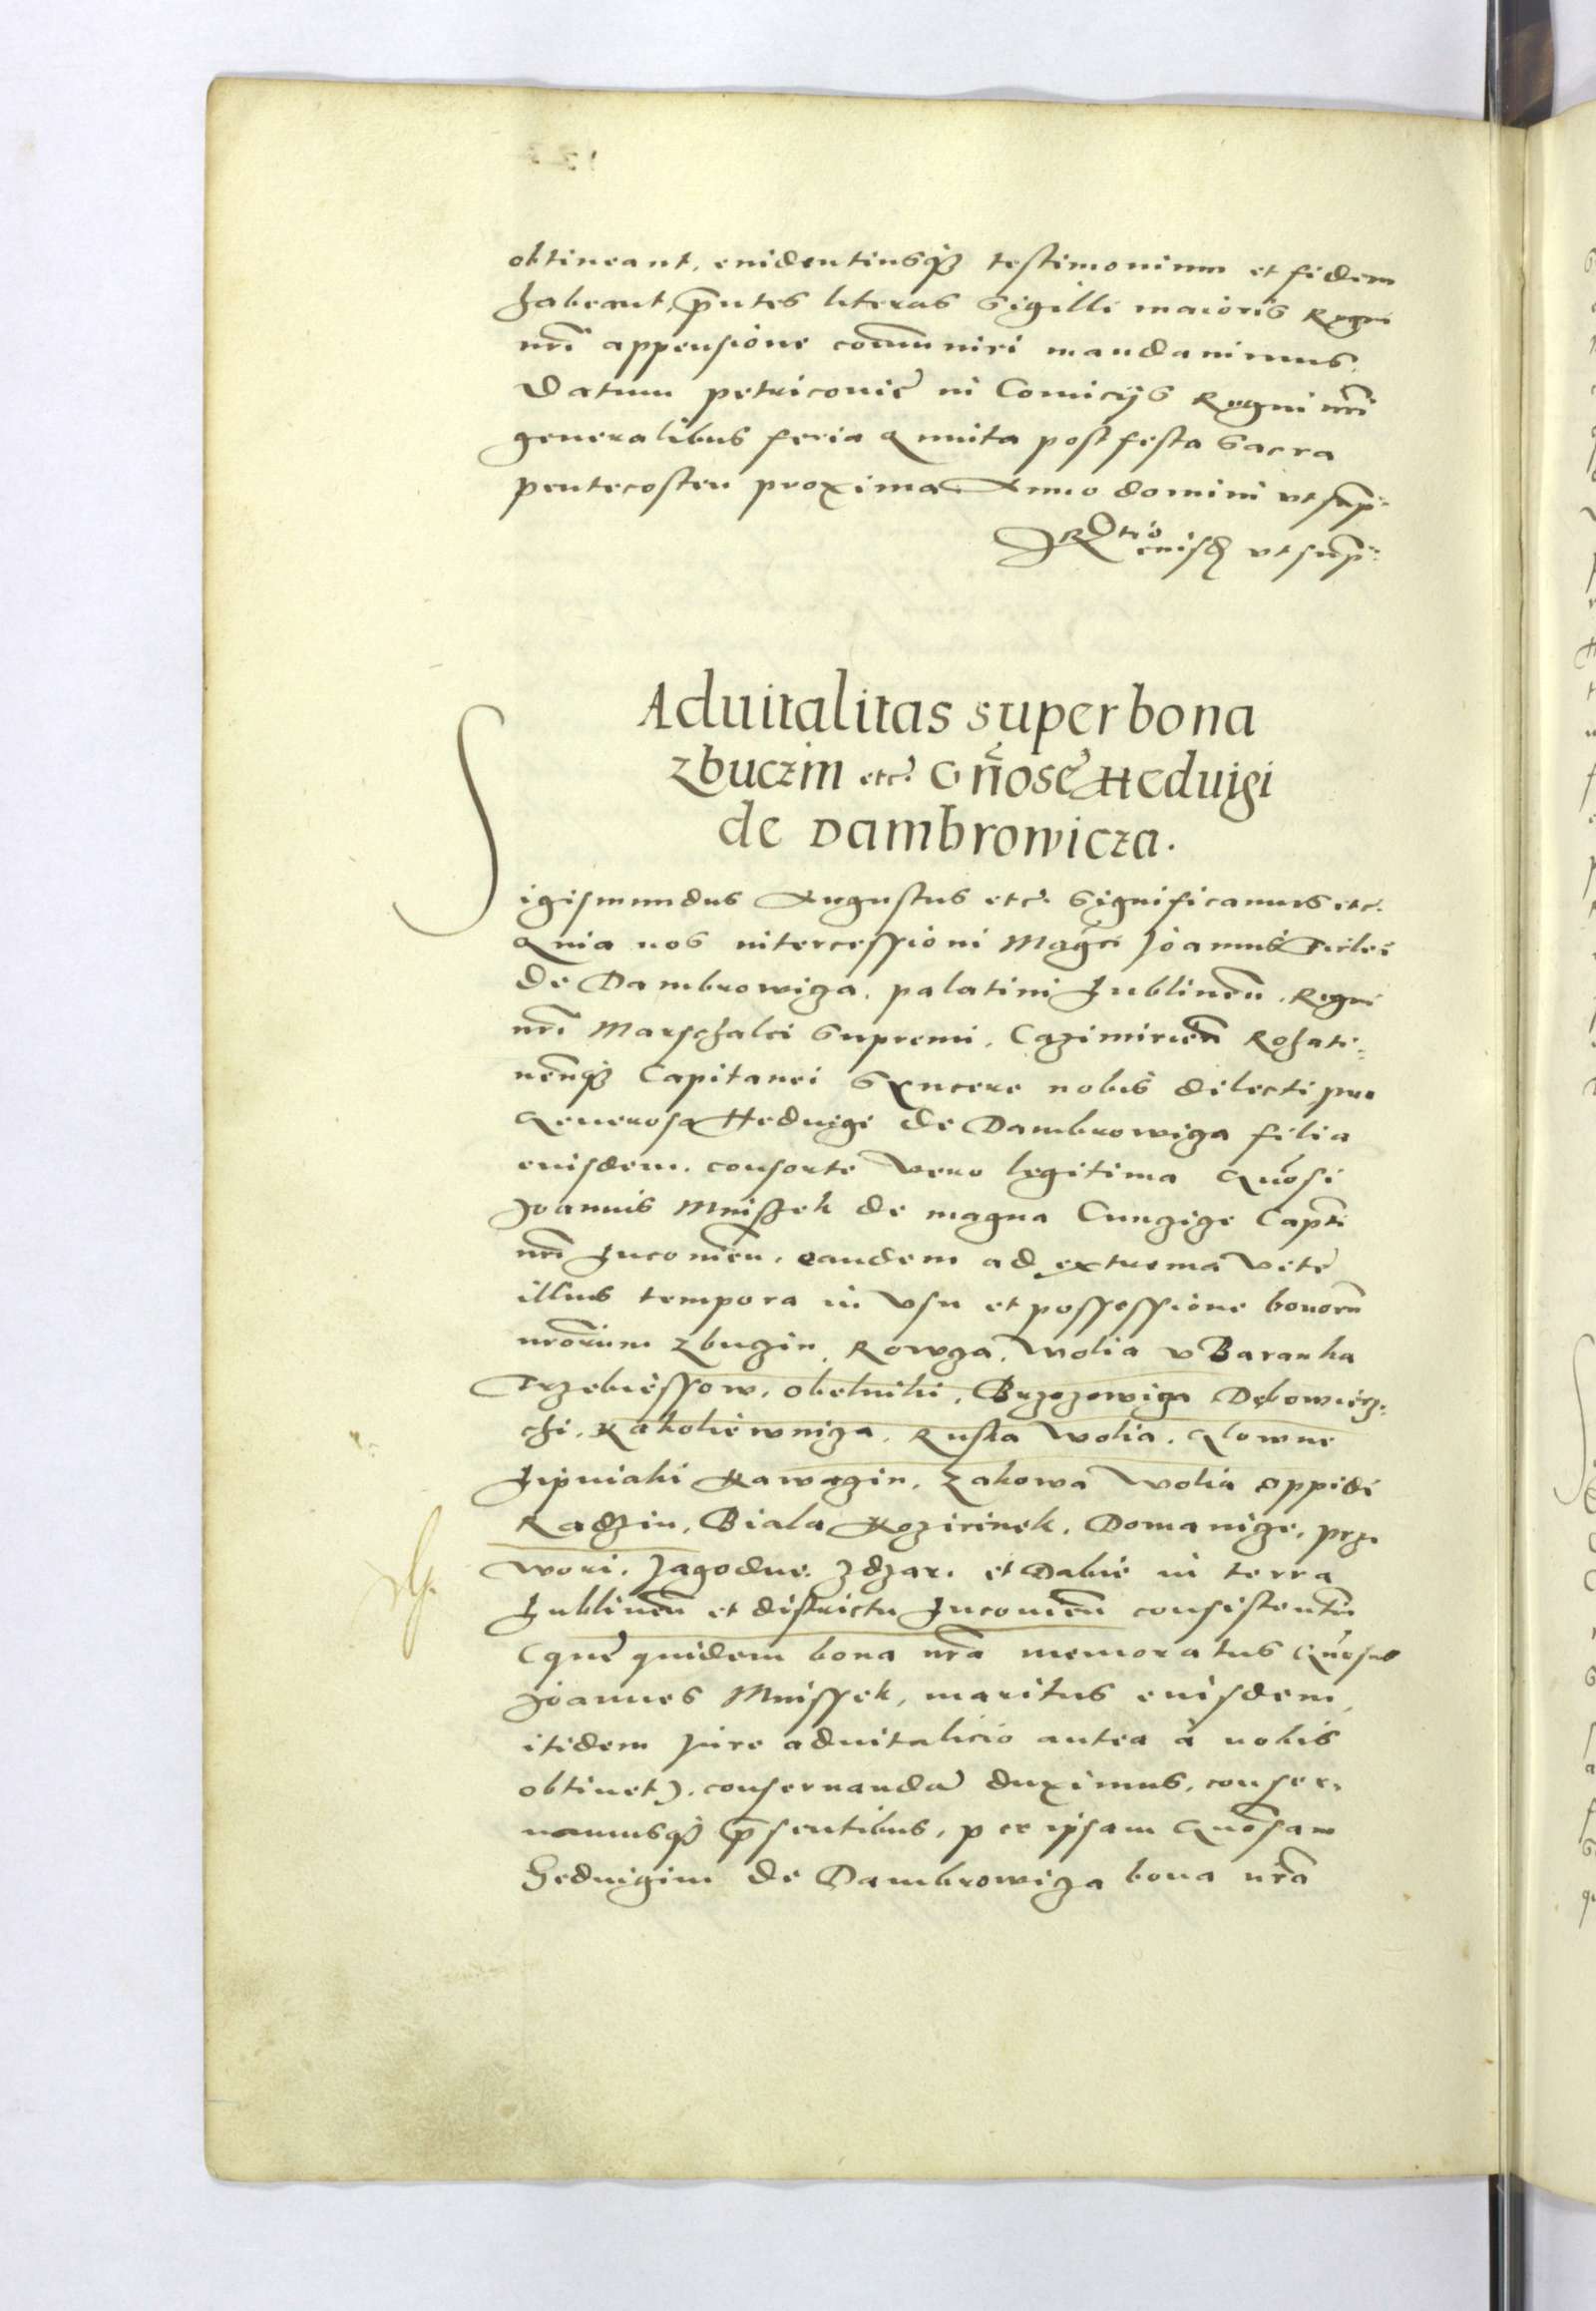 obtineant, euidentiusq₃ testimonium et fidem
habeant, p̄ntes literas Sigilli maioris Regni
nr̄i appensione com̄uniri mandauimus.
Datum petricouię in Comicijs Regni nr̄i
generalibus feria quinta post festa Sacra
pentecosten proxima Anno domini vt sup̄:
R͠tio eiusd̄ vt sup̄:
Aduitalitas super bona
zbuczin etc. Gn̄osę Heduigi
de Dambrowicza.
Sigismundus Augustus etc. Significamus etc.
Quia nos intercessioni Mag̃ci Joannis Firlei
de Dambrowiza, palatini Lublinen̄, Regni
nr̄i Marschalci Supremi, Cazimirien̄ Rohati-
nen̄q₃ Capitanei Syncere nobis dilecti pro
Generosa Heduige de Dambrowiza filia
eiusdem, consorte vero legitima Gn̄osi
Joannis Mnissek de magna Cunzize Capti
nr̄i Lucouien̄, eandem ad extrema vitę
illius tempora in vsu et possessione bonorū
nrōrum Zbuzin, Rowza, Wolia v Baranka
Trzebiessow, Obelniki, Brzozowiza Dębowierz-
chi, Kakoliewniza, Ruska Wolia, Glowne
Lipniaki Kawęzin, Zakowa Wolia oppidi
Radzin, Biala Kozirinek, Domanize, prze
wori, Jagodne, Zdzar, et Dabie in terra
Lublinen̄ et districtu Lucouien̄ consistentiū
(quę quidem bona nr̄a memoratus Gn̄osus
Joannes Mnissek, maritus eiusdem,
itidem Jure aduitalicio antea à nobis
obtinet), conseruandā duximus, conser-
uamusq₃ p̄sentibus, per ipsam Gn̄osam
Heduigim de Dambrowiza bona nr̄a